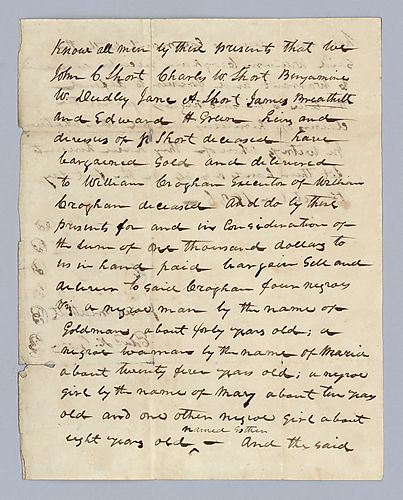 Know all men by these presents that we
John C Short Charles W Short Benjamine
W. Dudley Jane A. Short James Breathitt
and Edward H Green heirs and
devisees of Short deceased have
bargained Sold and delivered
to William Croghan Executor of William
Croghan deceased And do by these
presents for and in Consideration of
the Sum of One thousand dollars to
us in hand paid bargain Sell and
deliver to said Croghan four negroes
a negroe man by the name of
Goldman, about forty years old; a
negroe woman by the name of Maria
about twenty five years old; a negroe
girl by the name of Mary about ten years
old and one other negroe girl about
named Esther
eight years old, — And the said